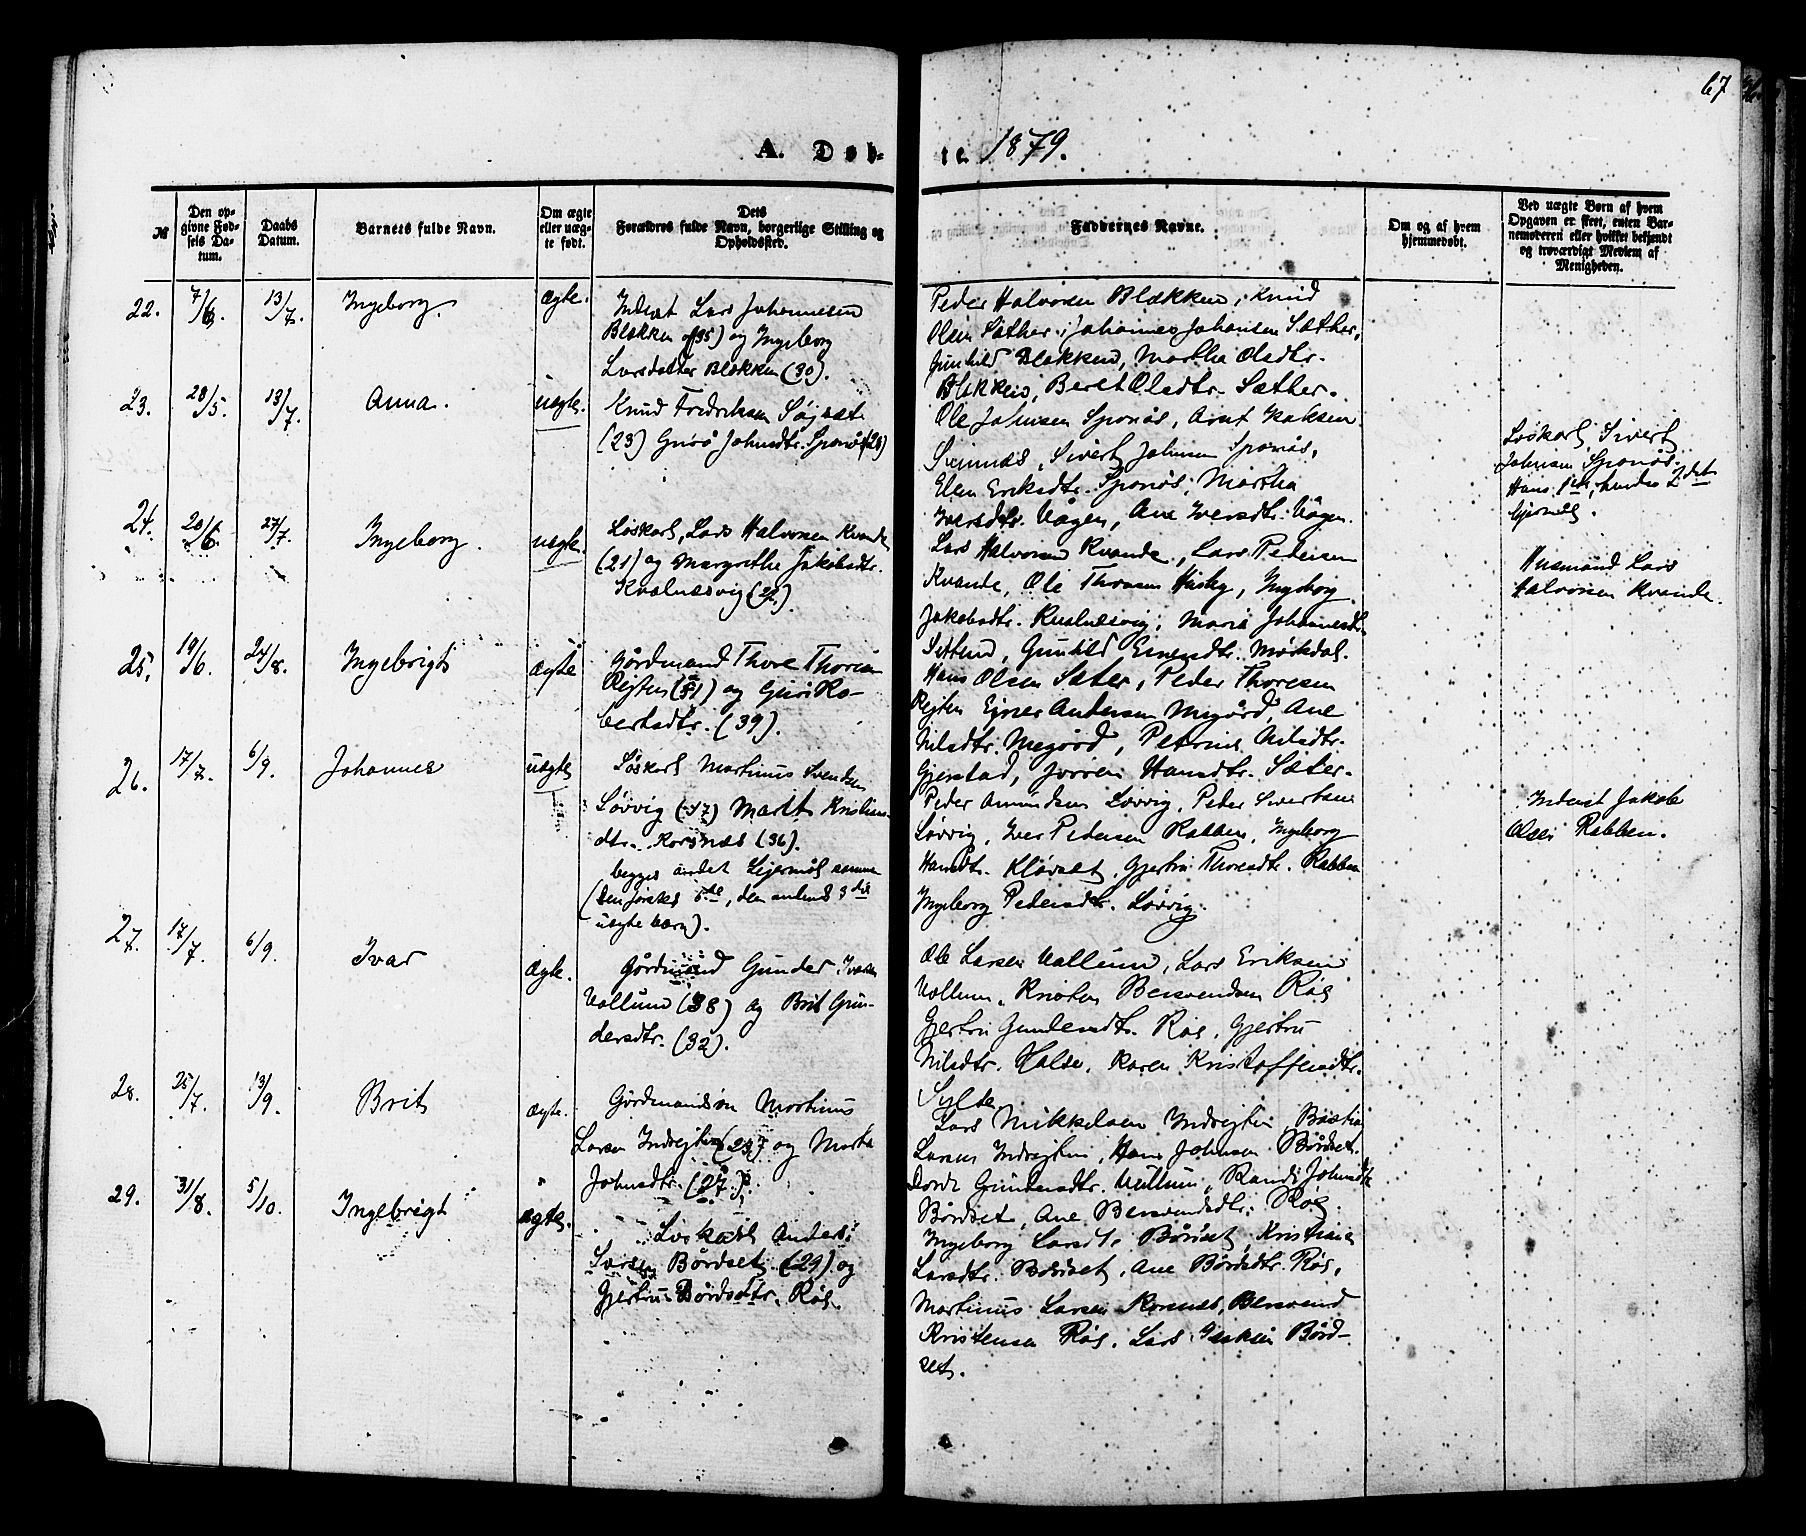 67
A. Døb-
te 1879.
№
Den opgivne Fødsels Datum.
Daabs Datum.
Barnets fulde Navn.
Om ægte eller uægte født.
Forældres fulde Navn, borgerlige Stilling og Opholdssted.
Faddernes Navne.
Om og af hvem hjemmedøbt.
Ved uægte Børn af hvem Opgaven er skeet, enten Barnemoderen eller hvilket bekjendt og troværdigt Medlem af Menigheden.
22. 7/6. 13/7. Ingeborg. ægte.
Inderst Lars Johannesen
Blekken (35) og Ingeborg
Larsdatter Blekken (30).
Peder Halvorsen Blækken, Knud
Olsen Sæther, Johannes Johansen Sæther,
Gunhild Blekken, Martha Olsdtr.
Blekken, Beret Olsdtr. Sæther.
23. 28/5. 13/7. Anna. uægte.
Knud Fredriksen
(23) Guro Johnsdtr. Sponås (28)
Ole Johnsen Sponås, Arnt Isaksen
Svinnæs, Sivert Johnsen Sponås,
Elen Eriksdtr. Sponås, Martha
Iversdtr. Vågen, Ane Iversdtr. Vågen.
Løskarl Sivert
Johnsen Sponås.
Hans 1ste, hendes 2det
24. 20/6. 27/7. Ingeborg. uægte.
Løskarl, Lars Halvorsen Kvande
(21) og Margrethe Jakobsdtr.
Kvalnæsvig (22.)
Lars Halvorsen Kvande, Lars Pedersen
Kvande, Ole Thoresen Husby, Ingeborg
Jakobsdtr. Kvalnæsvig, Marie Johannesdtr.
Settem, Gunhild Mørkdal.
Husmand Lars
Halvorsen Kvande.
25. 19/6. 24/8. Ingebrigt ægte
Gårdmand Thore Thoresen
Rejten (51) og Guri Ro-
bertsdtr. (39).
Hans Olsen Sæter, Peder Thoresen
Rejten Ejner Andersen Megård, Ane
Nilsdtr. Megård, Petrine Nilsdtr.
Gjerstad, Hansdtr. Sæter.
26. 17/7. 6/9. Johannes uægte
Løskarl Martinus Svendsen
Løvvig (37) Marit Kristians-
dtr. Korsnæs (36).
begges andet Lejermål sammen
(den førstes 5te, den andens 3die
uægte barn).
Peder Amundsen Løvvig, Peder Sivertsen
Løvvig, Iver Pedersen Rabben, Ingeborg
Hansdtr. Kløvset, Gjertru Thoresdtr. Rabben
Ingeborg Pedersdtr. Løvvig.
Inderst Jakob
Olsen Rabben.
27. 17/7. 6/9. Ivar ægte.
Gårdmand Gunder Ivarsen
Vollum (38) og Brit Gun-
dersdtr. (32).
Ole Larsen Vollum, Lars Eriksen
Vollum, Kristen Bersvendsen Røs
Gjertru Gundersdtr. Røs, Gjertru
Nilsdtr. Halse, Karen Kristoffersdtr.
Sylte
28. 25/7. 13/9. Brit ægte.
Gårdmandsøn Martinus
Larsen Indrejten (23) og Marta
Johnsdtr. (27).
Lars Mikkelsen Indrejten, Bastian
Larsen Indrejten, Hans Johnsen Bårdset.
Dordi Gundersdtr. Vollum, Randi Johnsdtr
Bårdset, Ane Bersvendsdtr. Røs.
29. 31/8. 5/10. Ingebrigt ægte.
Løskarl Anders
Larsen Bårdset (29) og
Gjertru Bårdsdtr. Røs.
Ingeborg Larsdtr Bårdset, Kristiane
Larsdtr. Bårdset, Ane Bårdsdtr. Røs,
Martinus Larsen Korsnes, Bersvend
Kristensen Røs, Lars Bård-
set.